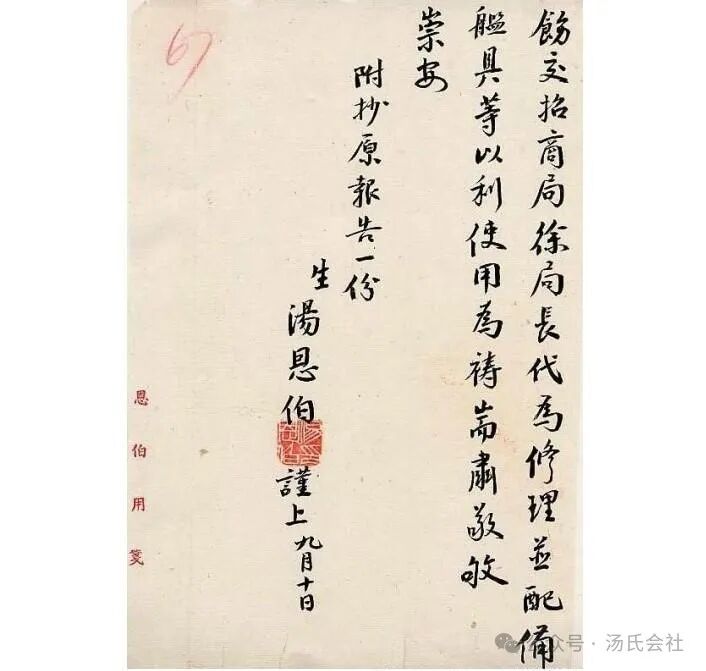 飭交招商局徐局長代為修理並配備
艦具等以利使用為禱耑肅敬敂
崇安
附抄原報告一份
生湯恩伯謹上九月十日
恩伯用箋
67
公众号·汤氏会社